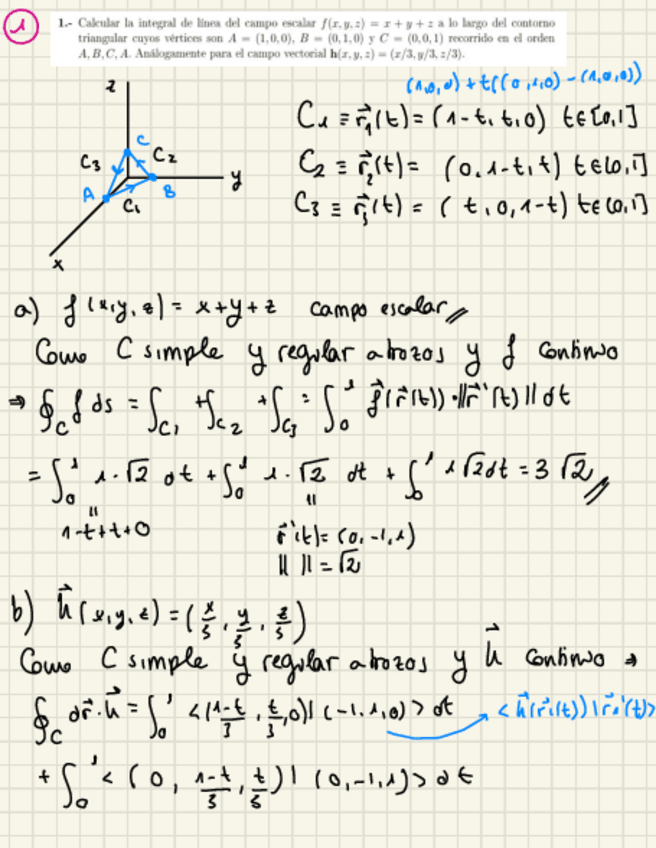 1
1.- Calcular la integral de línea del campo escalar f(x, y, z) = x + y + z a lo largo del contorno
triangular cuyos vértices son A = (1,0,0), B = (0,1,0) y C = (0,0,1) recorrido en el orden
A, B, C, A. Análogamente para el campo vectorial h(x, y, z) = (x/3, y/3, z/3).
(1,0,0) + t((0,1,0) - (1,0,0))
z
C
C3 C2
A B y
C1
x
C1 ≡ r⃗1(t) = (1-t, t, 0) t∈[0,1]
C2 ≡ r⃗2(t) = (0, 1-t, t) t∈[0,1]
C3 ≡ r⃗3(t) = (t, 0, 1-t) t∈[0,1]
a) f(x,y,z) = x+y+z campo escalar
Como C simple y regular a trozos y f continuo
⇒ ∮C f ds = ∫C1 + ∫C2 + ∫C3 = ∫0^1 f⃗(r⃗(t))·||r⃗'(t)|| dt
= ∫0^1 1·√2 dt + ∫0^1 1·√2 dt + ∫0^1 1√2 dt = 3√2
"
"
1-t+t+0
r⃗'(t) = (0,-1,1)
|| || = √2
b) h⃗(x,y,z) = (x/3, y/3, z/3)
Como C simple y regular a trozos y h⃗ continuo ⇒
∮C dr⃗·h⃗ = ∫0^1 <(1-t/3, t/3, 0)| (-1,1,0)> dt
<h⃗(r⃗1(t))|r⃗1'(t)>
+ ∫0^1 < (0, 1-t/3, t/3)| (0,-1,1)> dt